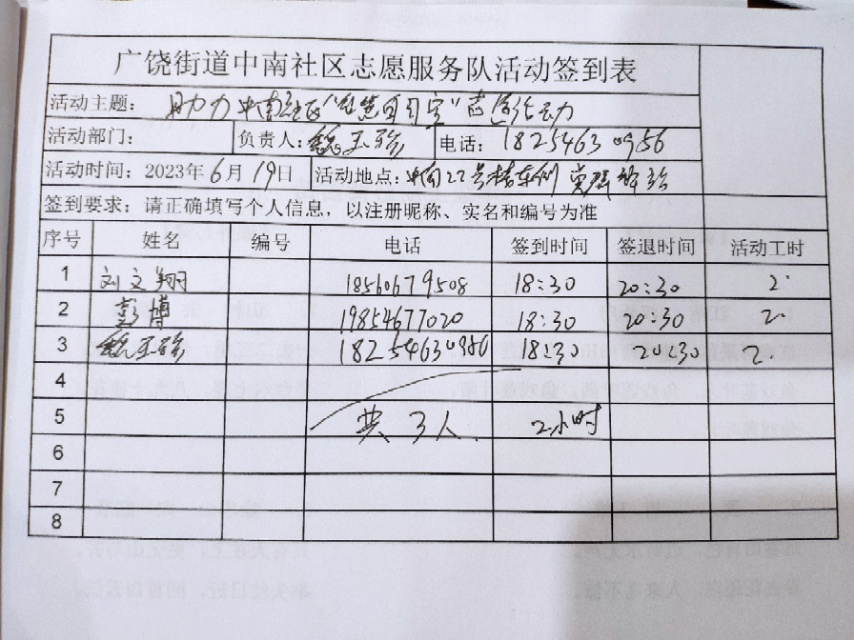 广饶街道中南社区志愿服务队活动签到表
活动主题： 助力中南社区" "志愿活动
活动部门： 负责人：魏玉珍 电话：18254630956
活动时间：2023年6月19日 活动地点：中南22号楼东侧
签到要求：请正确填写个人信息，以注册昵称、实名和编号为准
序号 姓名 编号 电话 签到时间 签退时间 活动工时
1 刘文翔 18560679508 18:30 20:30 2.
2 彭博 19854677020 18:30 20:30 2.
3 魏玉珍 18254630956 18:30 20:30 2.
4
5 共3人. 2小时
6
7
8